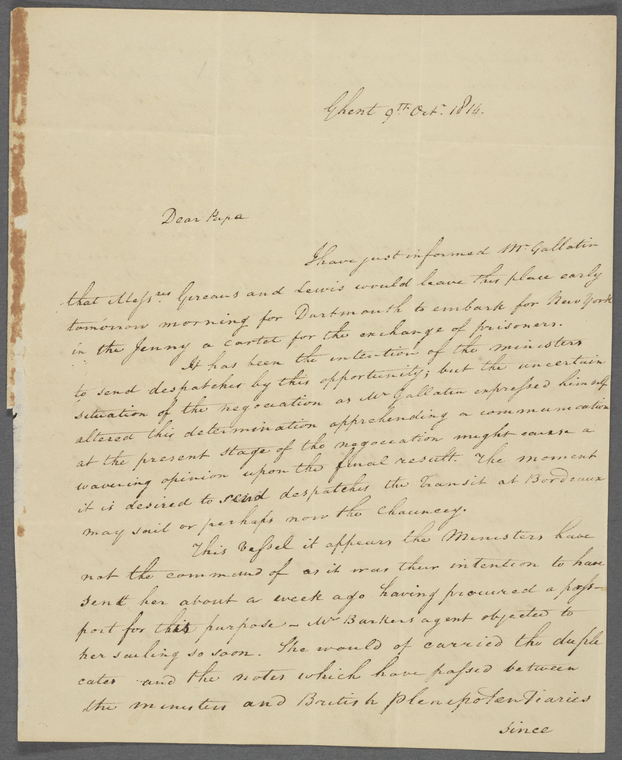 Ghent 9th Octr. 1814.
Dear Papa
I have just informed Mr Gallatin
that Messres Greaves and Lewis would leave this place early
tomorrow morning for Dartmouth to embark for New York
in the Jenny a cartel for the exchange of prisoners.
It has been the intention of the ministers
to send despatches by this opportunity; but the uncertain
situation of the negociation as Mr Gallatin expressed himself
altered this determination apprehending a communication
at the present stage of the negociation might cause a
wavering opinion upon the final result. The moment
it is desired to send despatches the Transit at Bordeaux
may sail or perhaps now the Chauncey.
This Vessel it appears the Ministers have
not the command of as it was their intention to have
sent her about a week ago having procured a pass-
port for this purpose - Mr Barkers agent objected to
her sailing so soon. She would of carried the duple
cates and the notes which have passed between
the ministers and British Plenipotentiaries
since